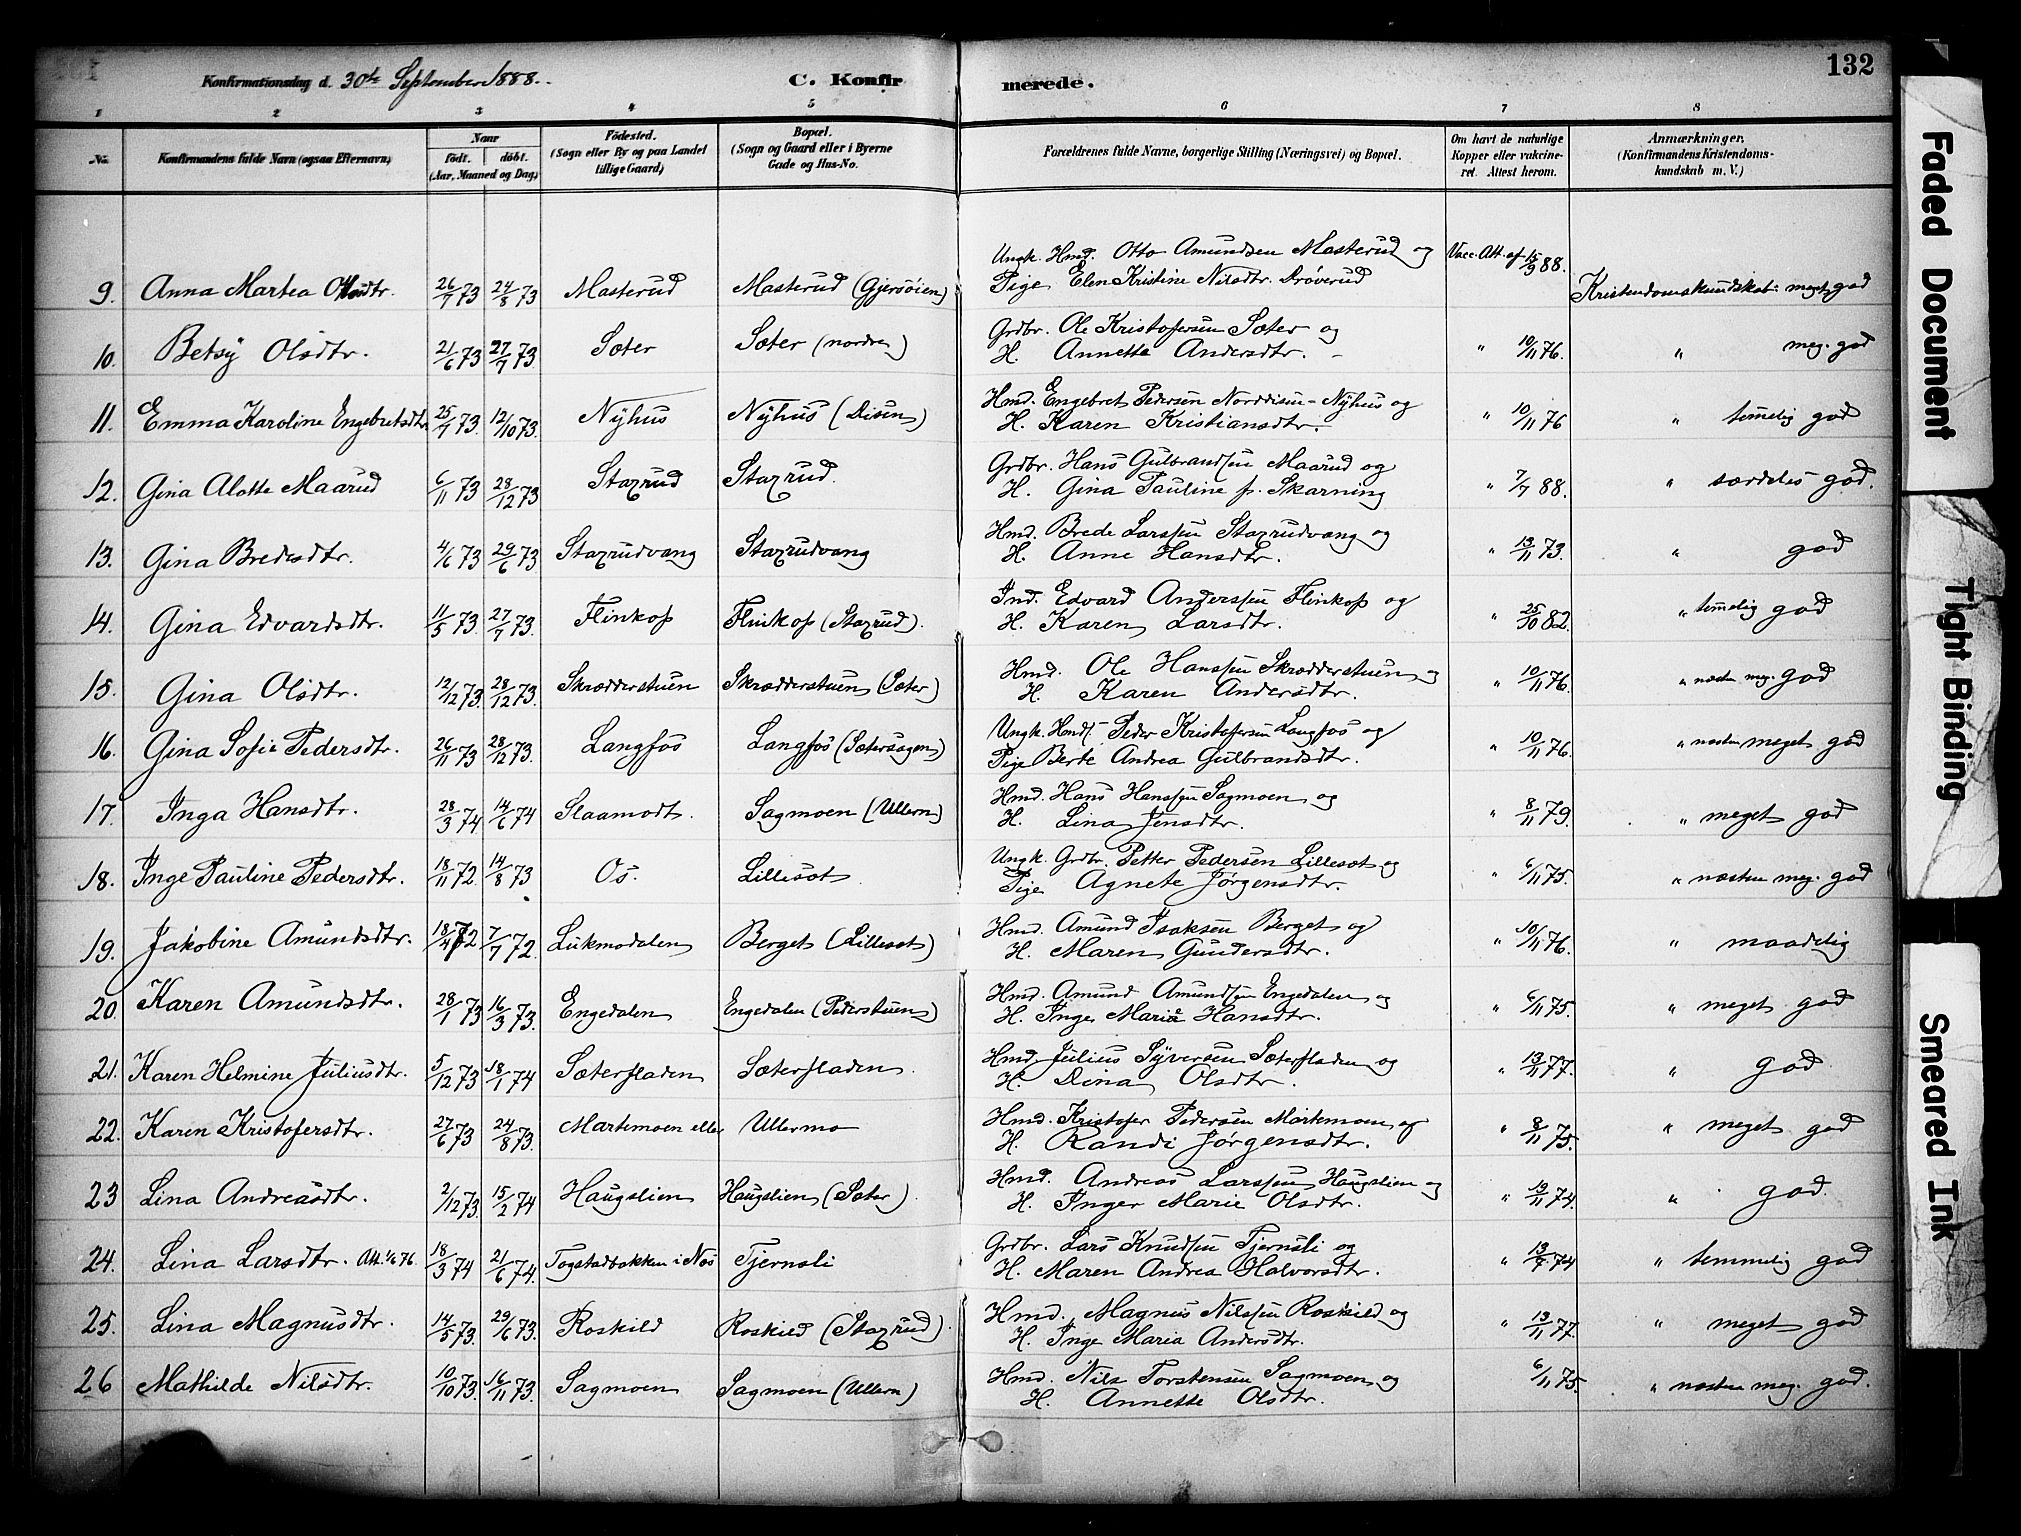 132
Konfirmationsdag d. 30te September 1888. C. Konfirmerede.
1 2 3 4 5 6 7 8
No. Konfirmandens fulde Navn (ogsaa Efternavn) Naar født. døbt. (Aar, Maaned og Dag) Fødested. (Sogn eller By og paa Landet tillige Gaard) Bopæl. (Sogn og Gaard eller i Byerne Gade og Hus-No. Forældrenes fulde Navne, borgerlige Stilling (Næringsvei) og Bopæl. Om havt de naturlige Kopper eller vakcineret. Attest herom. Anmærkninger, (Konfirmandens Kristendomskundskab m. V.)
9. Anna Martea Ottosdtr. 26/7 73 24/8 73 Masterud Masterud (Gjersøien) Ungk. Hmd. Otto Amundsen Masterud og Vacc. Att. af 15/9 88.
Pige Elen Kristine Nilsdtr. Drøverud Kristendomskundskab: meget god
10. Betsy Olsdtr. 21/6 73 27/7 73 Sæter Sæter (nordre) Grdbr. Ole Kristofersen Sæter og
H. Annette Andersdtr. " 10/11 76. " meg. god
11. Emma Karoline Engebretsdtr. 25/7 73. 12/10 73. Nyhus Nyhus (Disen) Hmd. Engebret Pedersen Norddisen-Nyhus og
H. Karen Kristiansdtr. " 10/11 76 " temelig god
12. Gina Alotte Maarud 6/11 73 28/12 73 Staxrud Staxrud. Grdbr. Hans Gulbrandsen Maarud og
H. Gina Pauline f. Skarning " 7/7 88. " særdeles god.
13. Gina Bredesdtr. 4/6 73 29/6 73 Staxrudvang Staxrudvang Hmd. Brede Larssen Staxrudvang og
H. Anne Hansdtr. " 13/11 73. " god
14. Gina Edvardsdtr. 11/5 73. 27/7 73. Flinkop Flinkop (Staxrud). Ind. Edvard Anderssen Flinkop og
H. Karen Larsdtr. " 25/10 82. " temelig god
15. Gina Olsdtr. 12/12 73. 28/12 73. Skrædderstuen Skrædderstuen (Sæter) Hmd. Ole Hanssen Skrædderstuen og
H. Karen Andersdtr. " 10/11 76. " næsten meg. god
16. Gina Sofie Pedersdtr. 26/11 73 28/12 73. Langfos Langfos (Sætersagen) Ungk. Hmd. Peder Kristofersen Langfos og
Pige Berte Andrea Gulbrandsdtr. " 10/11 76. " næsten meget god
17. Inga Hansdtr. 28/3 74 14/6 74 Slaamodt. Sagmoen (Ullern) Hmd. Hans Hanssen Sagmoen og
H. Lina Jensdtr. " 8/11 79. " meget god
18. Inge Pauline Pedersdtr. 18/11 72. 14/8 73 Os. Lillesæt Ungk. Grdbr. Petter Pedersen Lillesæt og
Pige Agnete Jørgensdtr. " 6/11 75. " næsten meg. god
19. Jakobine Amundsdtr. 18/4 72 7/7 72. Lukmodalen Berget (Lillesæt) Hmd. Amund Isaksen Berget og
H. Maren Gundersdtr. " 10/11 76. " maadelig
20. Karen Amundsdtr. 28/1 73 16/3 73. Engedalen Engedalen (Pederstuen) Hmd. Amund Amundsen Engedalen og
H. Inger Marie Hansdtr. " 6/11 75. " meget god
21. Karen Helmine Juliusdtr. 5/12 73 18/1 74 Sæterfladen Sæterfladen. Hmd. Julius Syversen Sæterfladen og
H. Dina Olsdtr. " 13/11 77. " god
22. Karen Kristofersdtr. 27/6 73 24/8 73. Martemoen eller Ullermo Hmd. Kristofer Pedersen Martemoen og
H. Randi Jørgensdtr. " 8/11 75. " meget god
23 Lina Andreasdtr. 2/12 73. 15/2 74 Haugslien Haugslien (Sæter) Hmd. Andreas Larssen Haugslien og
H. Inger Marie Olsdtr. " 13/11 74. " god.
24. Lina Larsdtr. Att. 1/6 76. 18/3 74 21/6 74. Togstadbakken i Næs Tjernsli Grdbr. Lars Knudsen Tjernsli og
H. Maren Andrea Halvorsdtr. " 13/7 74 " temmelig god
25. Lina Magnusdtr. 14/5 73. 29/6 73. Roskild Roskild (Staxrud). Hmd. Magnus Nilssen Roskild og
H. Inge Maria Andersdtr. " 13/11 77. " meget god
26 Mathilde Nilsdtr. 10/10 73. 16/11 73. Sagmoen Sagmoen (Ullern) Hmd. Nils Torstensen Sagmoen og
H. Annette Olsdtr. 6/11 75. " næsten meg. god.
Faded Document
Tight Binding
Smeared Ink